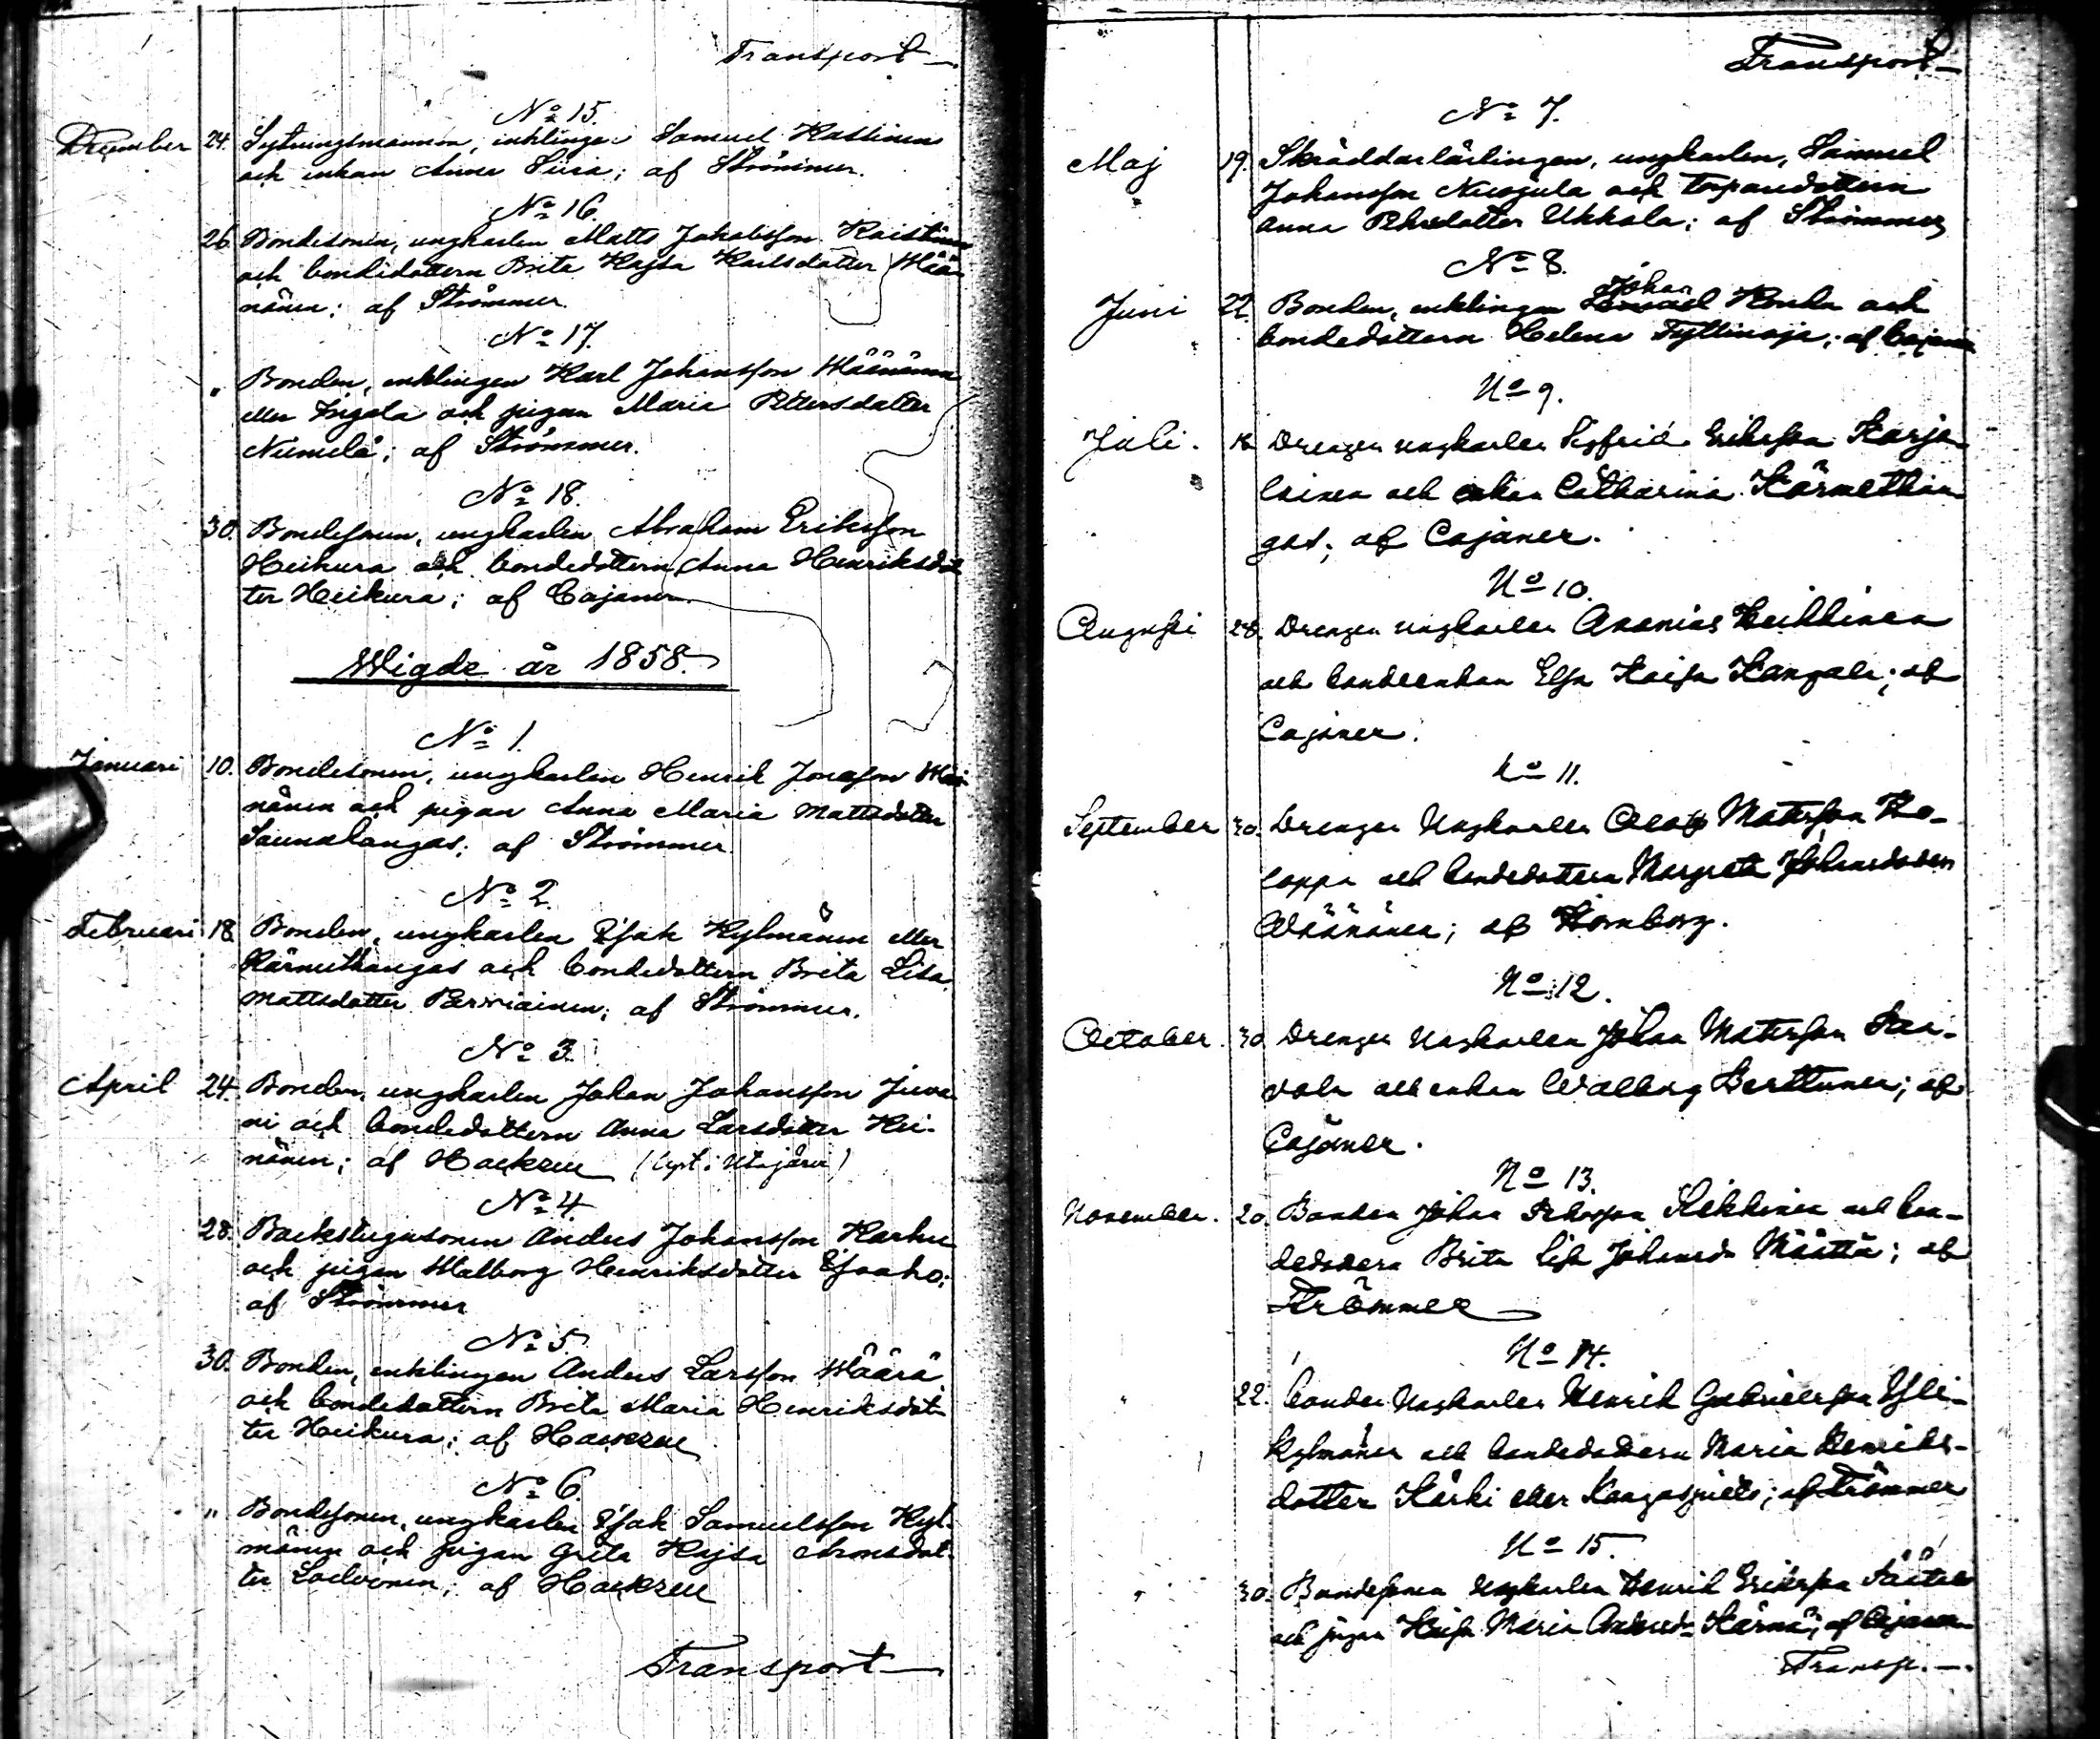 Transport
No 15.
December 24. Sytningsmannen, enklingen Samuel Kastinen
och enkan Anna Siira; af Strömmer.
No 16.
26. Bondesonen, ungkarlen Matts Jakobsson Kaistinen
och bondedottern Brita Kajsa Karlsdotter Wää-
nänen; af Strömmer.
No 17.
" Bonden, enklingen Karl Johansson Määnänen
eller Frigola och pigan Maria Pettersdotter
Niemelä; af Strömmer.
No 18.
30. Bondesonen, ungkarlen Abraham Eriksson
Heikura och bondedottern Anna Henriksdot
ter Heikura; af Cajaner.
Wigde år 1858.
No 1.
Januari 10. Bondesonen, ungkarlen Henrik Jonasson
nänen och pigan Anna Maria Mattsdotter
Saunakangas; af Strömmer.
No 2.
Februari 18. Bonden, ungkarlen Isak Kylmänen eller
Kärnetkangas och bondedottern Brita Lisa
Mattsdotter Parviainen; af Strömmer.
No 3.
April 24. Bonden, ungkarlen Johan Johansson Juva-
ni och bondedottern Anna Larsdotter Hei-
nänen; af Hackzell (lyst i Utajärvi)
No 4.
28. Backstugusonen Anders Johansson Karhu
och pigan Walborg Henriksdotter Isoaho;
af Strömmer
No 5.
30. Bonden, enklingen Anders Larsson Määrä
och bondedottern Brita Maria Henriksdot-
ter Heikura; af Hackzell
No 6.
" Bondesonen, ungkarlen Isak Samuelsson Kyl-
mänen och pigan Greta Kajsa Aronsdot-
ter Loelvonen; af Hackzell
Transport
Transport
No 7.
Maj 19. Skräddarlärlingen, ungkarlen, Samuel
Johansson Nuojula och torparedottern
Anna Pehrsdotter Ukkola; af Strömmer
No 8.
Johan
Juni 22. Bonden, enklingen Samuel Honka och
bondedottern Helena Tyttinoja; af Cajaner
No 9.
Juli. 18. Drengen ungkarlen Sigfrid Eriksson Karja-
lainen och enkan Catharina Kärnetkan-
gas; af Cajaner.
No 10.
Augusti 28. Drengen ungkarlen Ananias Heikkinen
och bondeenkan Elsa Kaisa Kangala; af
Cajaner.
No 11.
September 30. Drengen Ungkarlen Olof Matsson Ko-
loppa och bondedottern Margreta Johansdotter
Wäänänen; af Hornborg.
No 12.
October. 30. Drengen Ungkarlen Johan Matsson Kai-
vola och enkan Walborg Kerttunen; af
Cajaner.
No 13.
November. 20. Bonden Johan Pehrsson Kekkinen och bon-
dedottern Brita Lisa Johansd. Määttä; af
Strömmer
No 14.
22. bonden Ungkarlen Henrik Gabrielsson Yli-
kylmänen och bondedottern Maria Henriks-
dotter Kärki eller Kangaspielo; af Strömmer
No 15.
30. Bondesonen Ungkarlen Henrik Eriksson Säätelä
och pigan Kaisa Maria Andersd. Kärnä; af Cajaner
Transp.